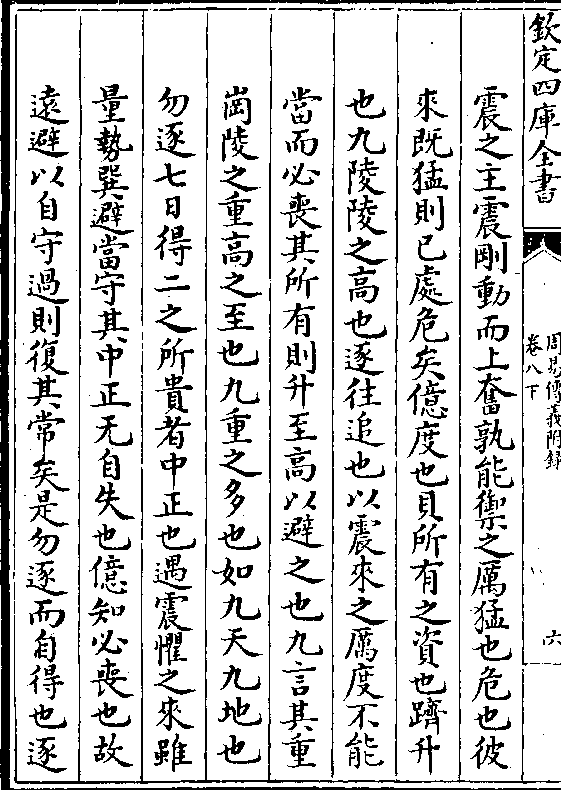 欽定四庫全書
周易傳義附録
卷八下
六
震之主震剛動而上奮孰能禦之厲猛也危也彼
來既猛則已處危矣億度也貝所有之資也躋升
也九陵陵之高也逐往追也以震來之厲度不能
當而必喪其所有則升至高以避之也九言其重
崗陵之重高之至也九重之多也如九天九地也
勿逐七日得二之所貴者中正也遇震懼之來雖
量勢巽避當守其中正无自失也億知必喪也故
遠避以自守過則復其常矣是勿逐而自得也逐